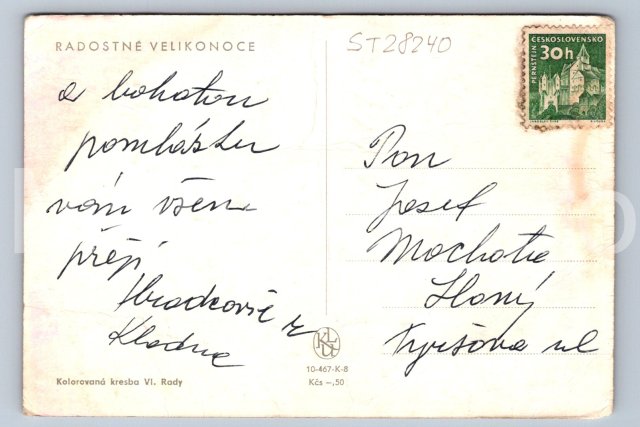 RADOSTNÉ VELIKONOCE
ST28240
ČESKOSLOVENSKO
30h
PERNŠTEJN
a bohatou
pomlázku
vám všem
přejí
Hradcovi z
Kladna
Pan
Josef
Machota
Slaný
Tyršova ul
10-467-K-8
Kčs –,50
Kolorovaná kresba Vl. Rady